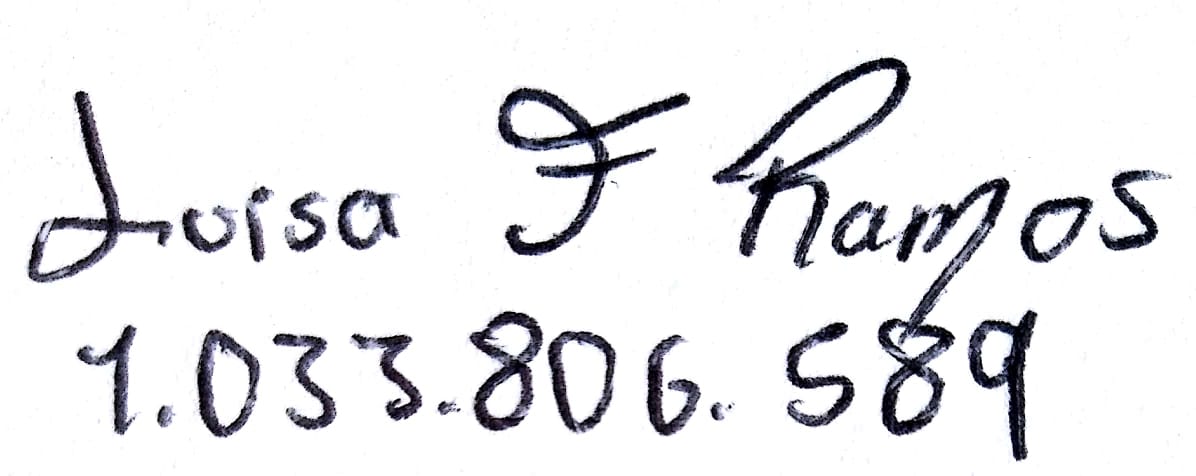 Luisa F Ramos
1.033.806.589